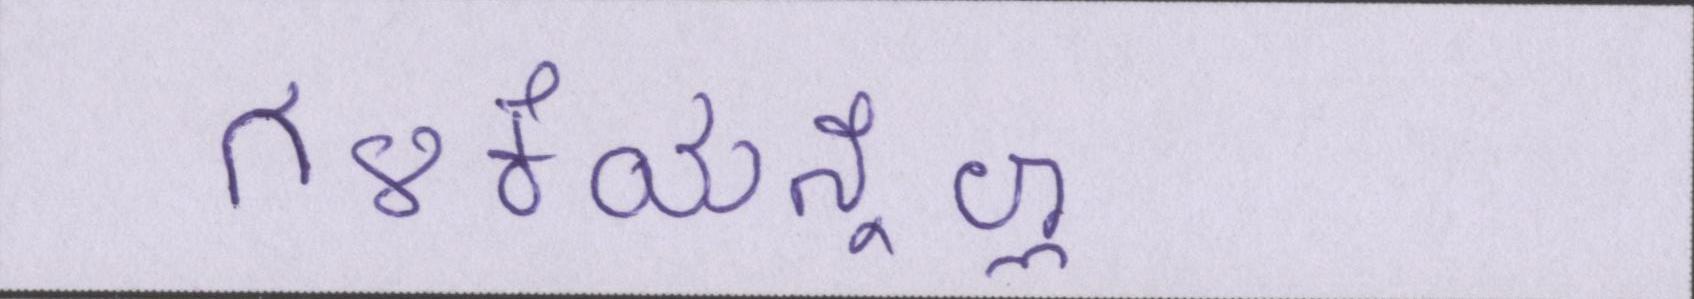 ಗಳಿಕೆಯನ್ನೆಲ್ಲ